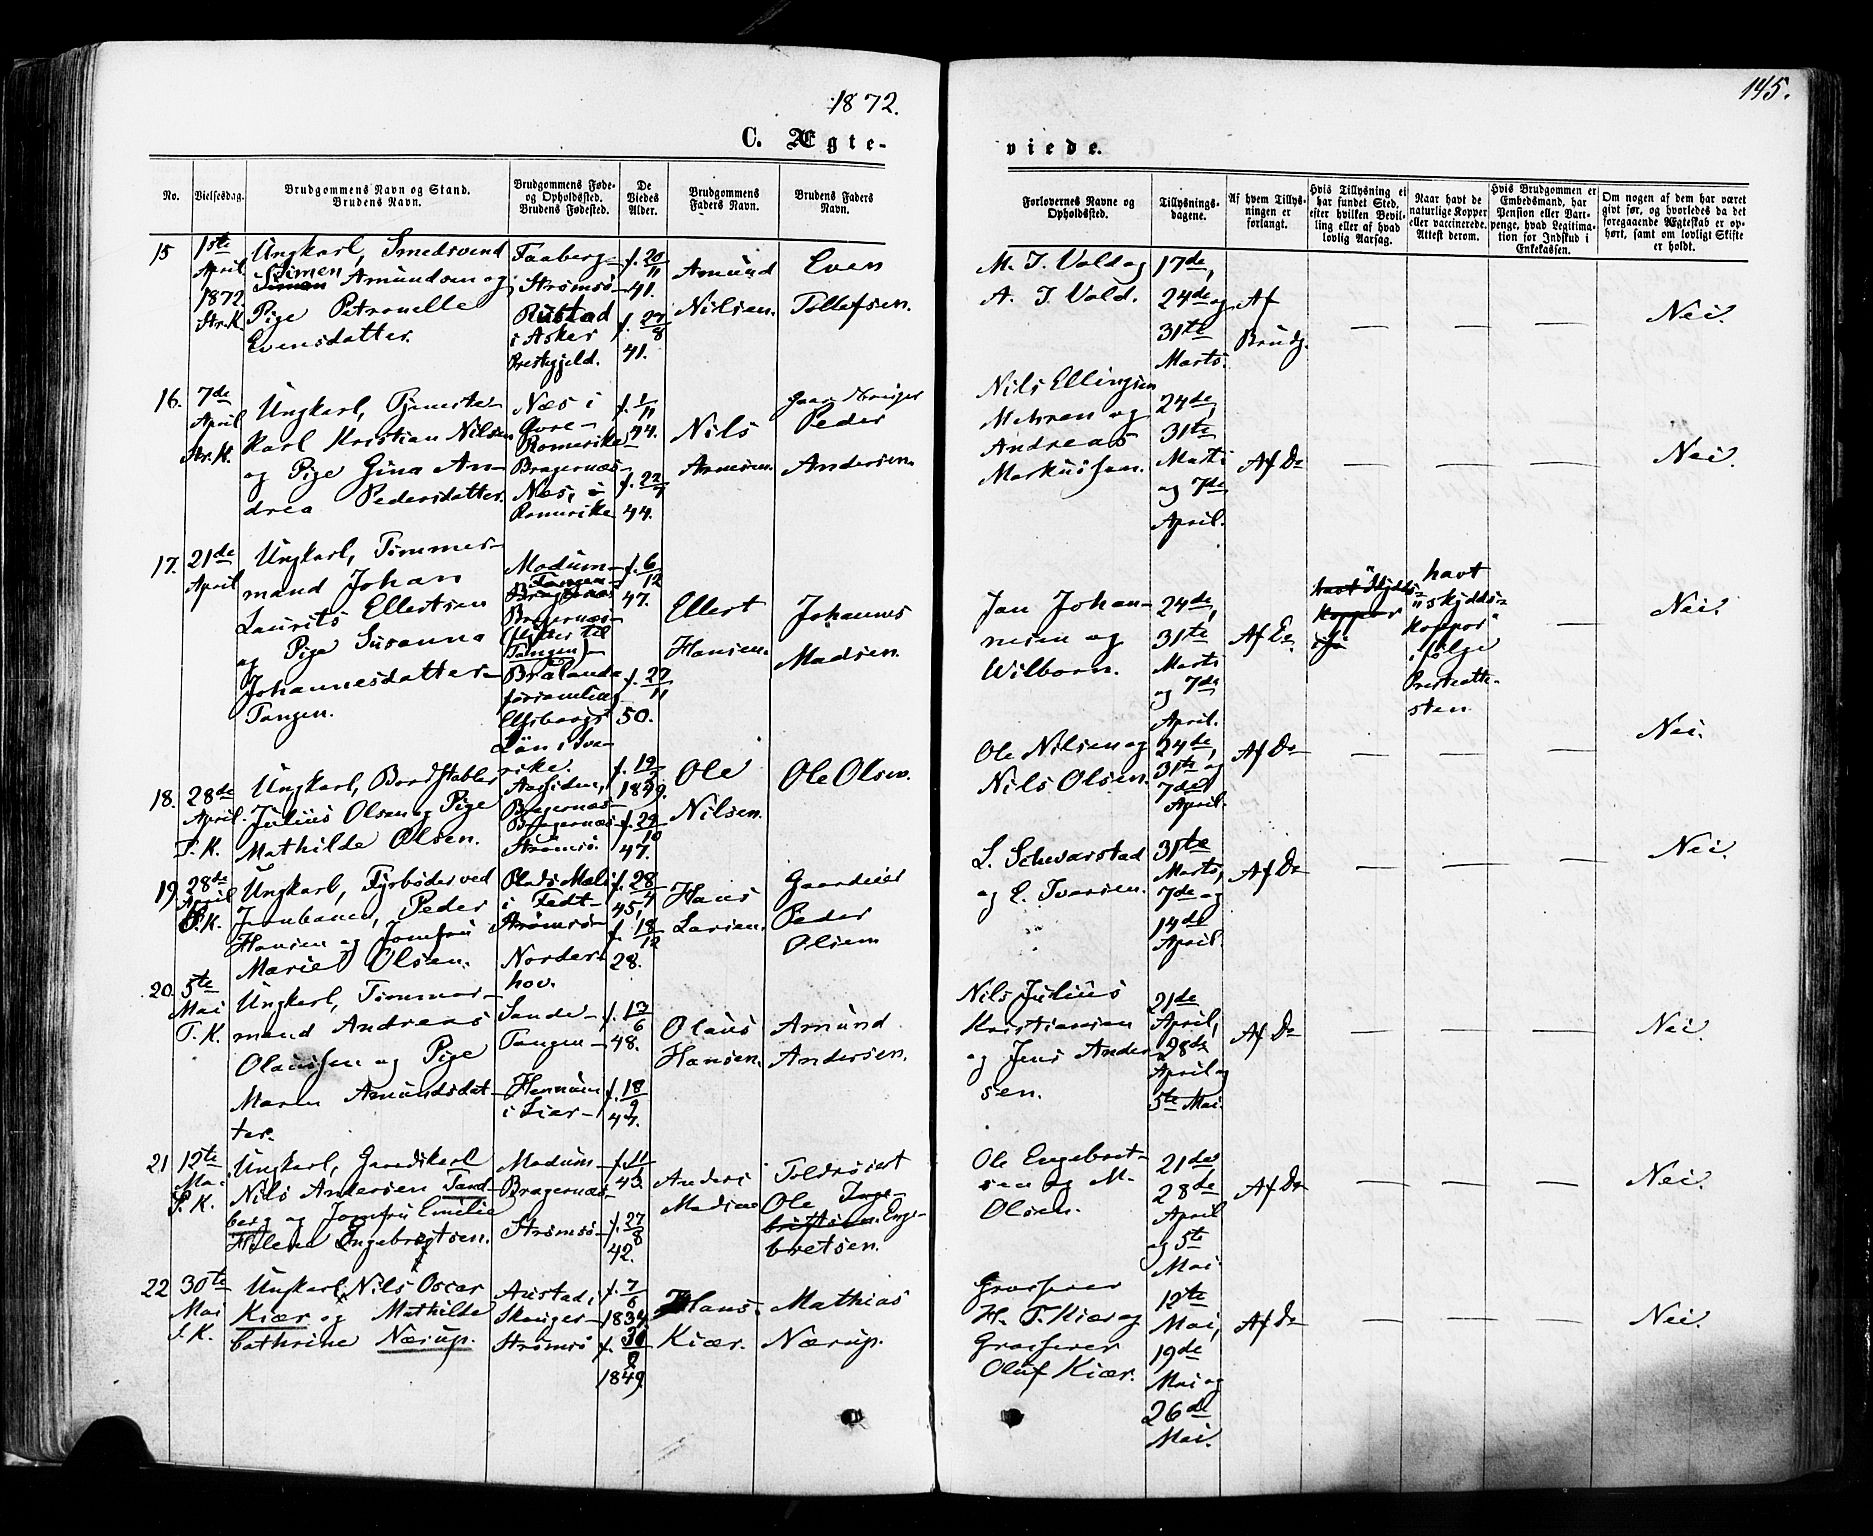 1872.
145.
C. Ægte-
viede.
No.
Vielsesdag.
Brudgommens Navn og Stand.
Brudens Navn.
Brudgommens Føde-
og Opholdssted.
Brudens Fødested.
De
Viedes
Alder.
Brudgommens
Faders Navn.
Brudens Faders
Navn.
Forlovernes Navne og
Opholdssted.
Tillysnings-
dagene.
Af hvem Tillys-
ningen er
forlangt.
Hvis Tillysning ei
har fundet Sted,
efter hvilken Bevil-
ling eller af hvad
lovlig Aarsag.
Naar havt de
naturlige Kopper
eller vaccinerede.
Attest derom.
Hvis Brudgommen er
Embedsmand, har
Pension eller Vart-
penge, hvad Legitima-
tion for Indskud i
Enkekassen.
Om nogen af dem har været
givt før, og hvorledes da det
foregaaende Ægteskab er op-
hørt, samt om lovligt Skifte
er holdt.
15
1ste
April
1872.
Str. K.
Ungkarl, Smedsvend
Simen Amundsen og
Pige Petronelle
Evensdatter.
Faaberg-
Strømsø-
Rustad
i Asker
Prestegjeld.
f. 20/11
41.
f. 27/8
41.
Amund
Nilsen.
Even
Tollefsen.
M. J. Vold og
A. J. Vold.
17de,
24de og
31te
Marts.
Af
Brudg.
— — —
Nei.
16.
7de
April
Str. K.
Ungkarl, Tjeneste-
karl Kristian Nilsen
og Pige Gina An-
drea Pedersdatter.
Næs i
Øvre-
Romerike
Bragernæs-
Næs, i
Romerike
f. 1/11
44.
f. 22/7
44.
Nils
Arnesen.
Peder
Andersen.
Nils Ellingsen
Mehren og
Andreas
Markussen.
24de,
31te
Marts
og 7de
April.
Af Do
— — —
Nei.
17.
21de
April
Ungkarl, Tømmer-
mand Johan
Laurits Ellertsen
og Pige Susanna
Johannesdatter-
Tangen.
Modum-
Tangen-
Bragernæs
Bragernæs-
(flytter til
Tangen)-
Brålanda
församling
Elfsborgs
Län i Sve-
rike.
f. 6/12
47.
f. 27/11
50.
Ellert
Hansen.
Johannes
Madsen.
Jan Johan-
nesen og
Wilborn.
24de,
31te
Marts
og 7de
April.
havt
"skydds-
koppor"
i følge
Presteatte-
sten.
—
Nei.
18.
28de
April.
T. K.
Ungkarl, Bordstabler
Julius Olsen og Pige
Mathilde Olsen.
Aassiden,
Bragernæs-
Bragernæs-
Strømsø.
1849.
f. 29/10
47.
Ole
Nilsen.
Ole Olsen.
Ole Nilsen og
Nils Olsen.
24de,
31te og
7de
April.
Af Do
— — —
Nei.
19
28de
April
S. K.
Ungkarl, Fyrbøder ved
Jernbanen, Peder
Hansen og Jomfru
Marie Olsen.
i Fedt-
Strømsø-
Norder-
hov.
f. 28/4
45,
f. 18/12
28.
Hans
Larsen.
Gaardeier
Peder
Olsen
L. Schwarstad
og E. Ivarsen.
31te
Marts,
7de og
14de
April.
Af Do
— — —
Nei.
20.
5te
Mai
T. K.
Ungkarl, Tømmer-
mand Andreas
Olaussen og Pige
Maren Amundsdat-
ter.
Sande-
Tangen-
Hennum
i Lier-
f. 17/6
48.
f. 18/9
47.
Olaus
Hansen.
Amund
Andersen.
Nils Julius
Kristiansen
og Jens Ander-
sen.
21de
April,
28de
April og
5te Mai.
Af Do
— — —
Nei.
21
12te
Mai
S. K.
Ungkarl, Gaardskarl
Nils Andersen Sand-
berg og Jomfru Emilie
Helene Engebretsen.
Modum-
Bragernæs-
Strømsø-
43.
f. 27/8
42.
Anders
Madsen
Ole Inge-
britsen. Enge-
bretsen.
Ole Engebret-
sen og M.
Olsen.
21de,
28de
April
og 5te
Mai.
Af Do
— — —
Nei.
22
30te
Mai
S. K.
Ungkarl, Nils Oscar
Kiær og Mathilde
Cathrine Nærup.
Austad i
Skouger-
Strømsø
f. 7/6
1834
1849.
Hans
Kiær.
Mathias
Nærup.
Grosserer
H. T. Kiær og
Grosserer
Oluf Kiær.
12te
Mai,
19de
Mai og
26de
Mai.
Af Do
— — —
Nei.